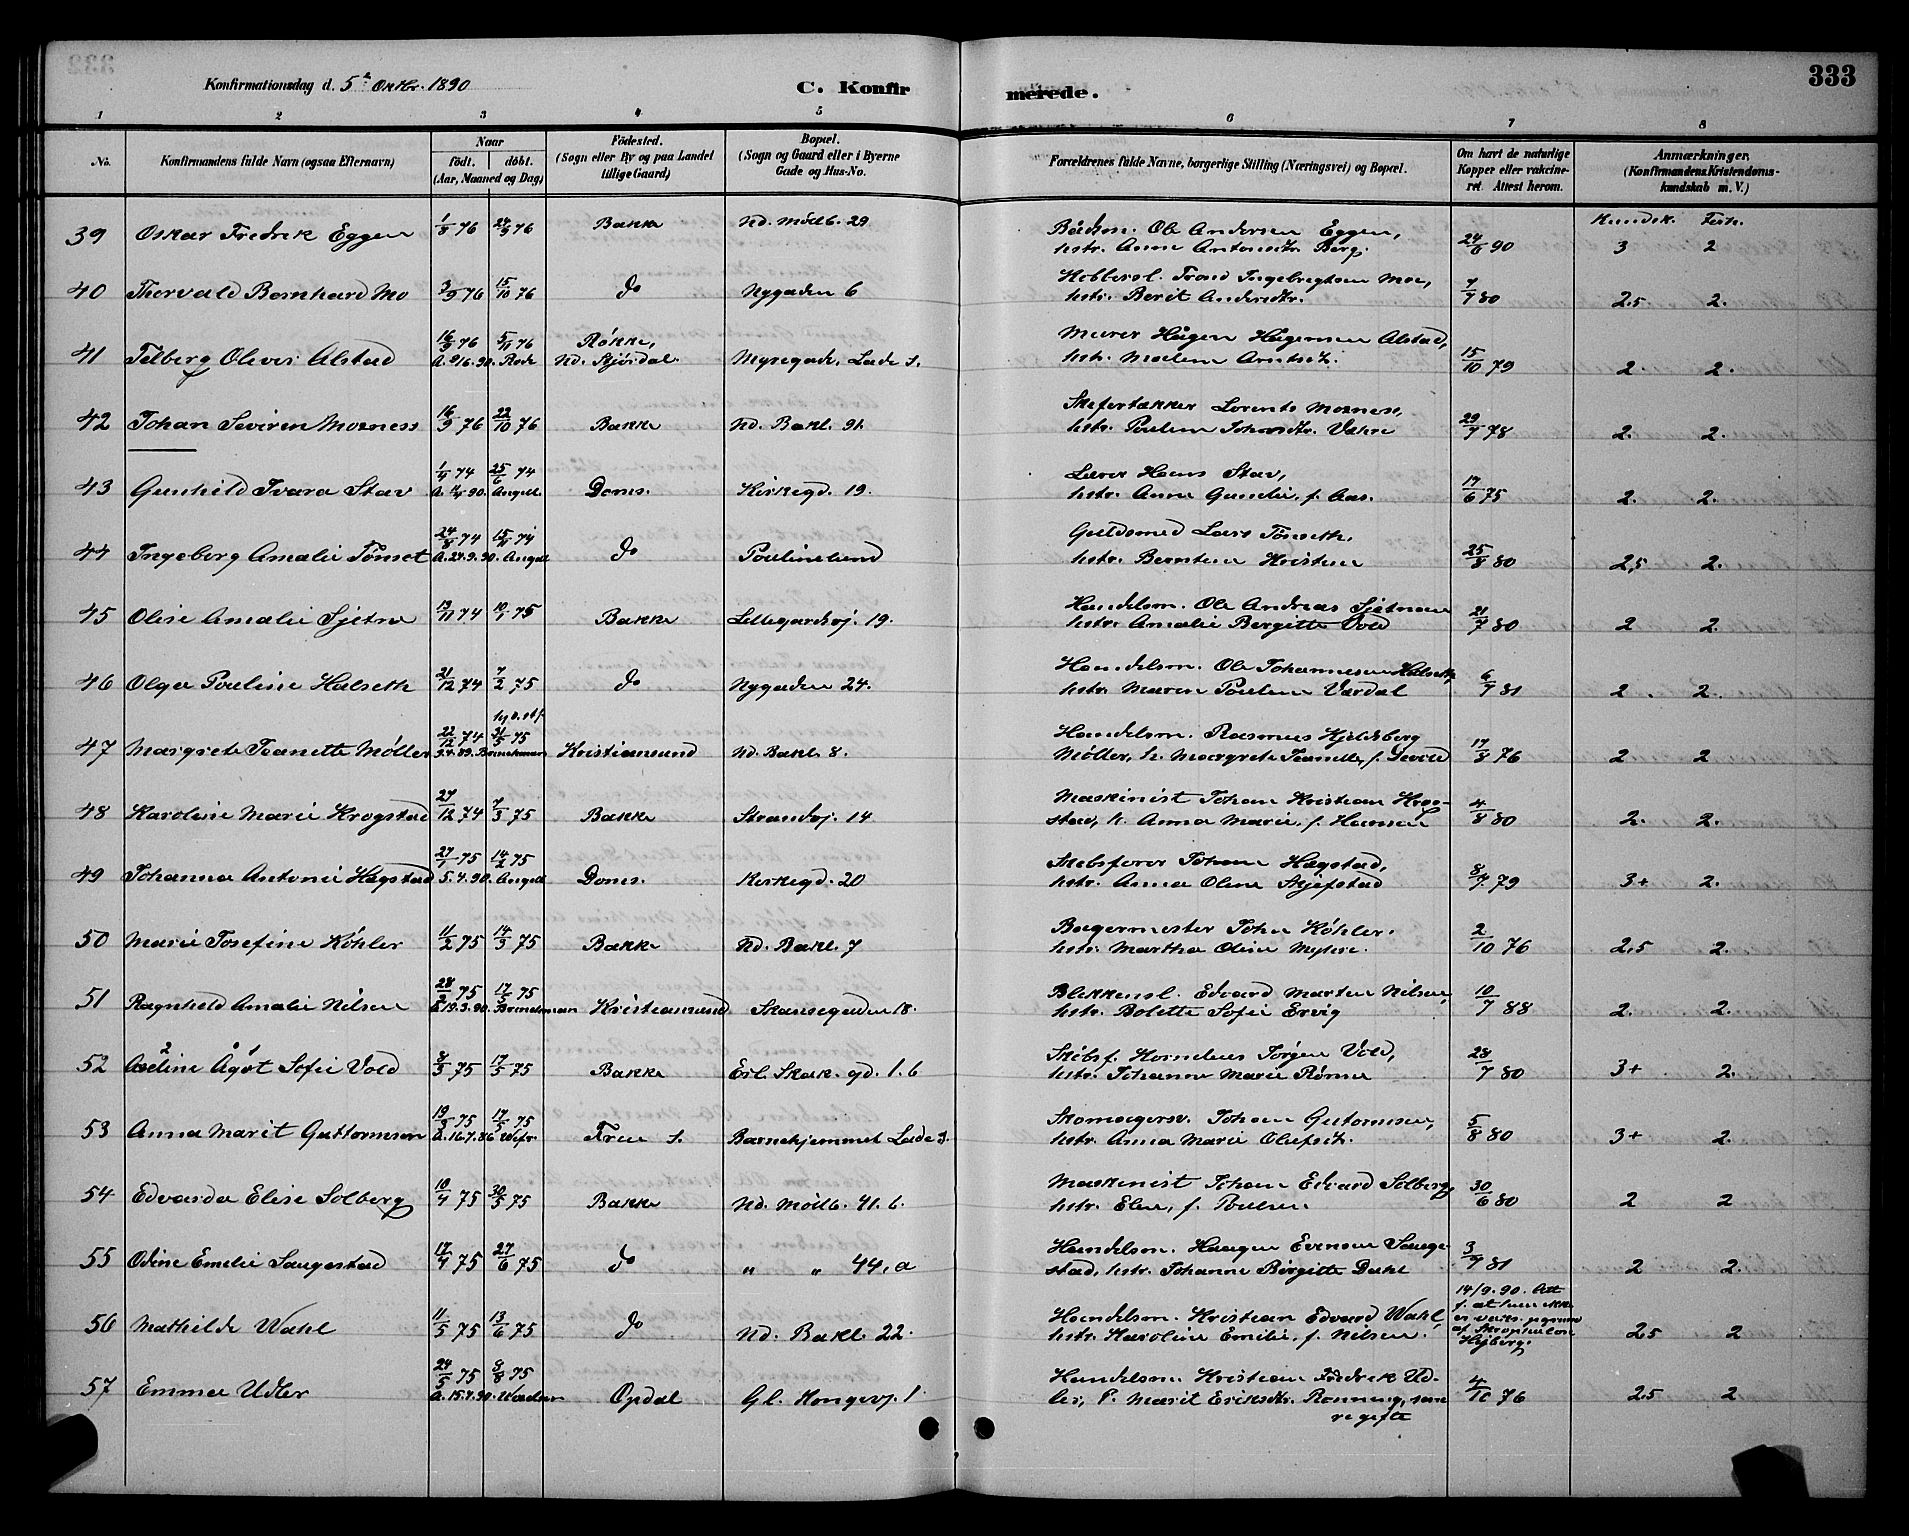 333
Konfirmationsdag d. 5te Oktbr. 1890
C. Konfirmerede.
1 2 3 4 5 6 7 8
No. Konfirmandens fulde Navn (ogsaa Efternavn) Naar födt. döbt. (Aar, Maaned og Dag) Födested. (Sogn eller By og paa Landet tillige Gaard) Bopæl. (Sogn og Gaard eller i Byerne Gade og Hus-No. Forældrenes fulde Navne, borgerlige Stilling (Næringsvei) og Bopæl. Om havt de naturlige Kopper eller vakcineret. Attest herom. Anmærkninger, (Konfirmandens Kristendomskundskab m. V.)
Kundsk. Flit.
39 Oskar Fredrik Eggen 1/8 76 24/9 76 Bakke Nd. Möllb. 29 Ole Andersen Eggen,
hstr. Anne Antonsdtr. Berg. 24/6 90 3 2
40 Thorvald Bernhard Mo 3/9 76 15/10 76 do Nygaden 6 Trond Ingebrigtsen Moe,
hstr. Berit Andersdtr. 7/7 80 2,5 2.
41 Oliver Alstad 16/9 76 5/11 76 Røkke, Murer Hågen Hågensen Alstad,
Nd. Stjørdal. Myregade. Lade s. hstr. Malena Arntsdt. 15/10 79 2. 2.
42 Johan Severin Morness 16/9 76 22/10 76 Bakke Nd. Bakl. 91. Skifertækker Lorents Morness,
hstr. 29/7 78 2. 2.
43 Gunhild Tvara Stav 1/4 74 25/6 74 Doms. Kirkegd. 19. Hans Stav,
hstr. Anna Gunelie, f. Aas. 17/6 75 2. 2.
44 Ingeborg Amalie Tönset 24/8 74 15/11 74 do Paulinelund Guldsmed Lars Tönseth,
A. 24.9.90. Angell hstr. Berntine Kristine 25/8 80 2,5 2.
45 Olise Amalie Sjetne 13/11 74 10/1 75 Bakke Lillegårdsvj. 19. Handelsm. Ole Andreas Sjetnan
hstr. Amalie Bergitte Vold 21/7 80 2 2.
46 Olga Pauline Halseth 21/12 74 7/2 75 do Nygaden 24. Handelsm. Ole Johannesen Halseth,
hstr. Maren Pauline Værdal 6/7 81 2. 2.
47 Margrete Jeanette Møller 22/12 74 21/5 75 Kristiansund Nd. Bakl. 8. Handelsm. Rasmus Hjeldsberg
Møller, h. Margrete Jeanette, f. 17/8 76 2 2
48 Karoline Marie Krogstad 27/12 74 7/3 75 Bakke Strandvj. 14 Maskinist Johan Kristian Krog-
stad, h. Anna Marie, f. Hansen 4/8 80 2. 2.
49 Johanna Antonie Hagstad 27/1 75 14/2 75 Doms. Kirkegd. 20 Skibsfører Johan Hagstad,
5.4.90. Angell hstr. Anna Oline Skjefstad 8/7 79 3+ 2.
50 Marie Josefine Köhler 11/2 75 14/3 75 Bakke Nd. Bakl. 7 Bagermester John Köhler.
hstr. Martha Oline Myhre. 2/10 76 2,5 2.
51 Ragnhild Amalie Nilsen 28/2 75 17/5 75 Kristiansund Skansegaden 18. Blikkensl. Edvard Martin Nilsen,
hstr. Bolette Sofie Ervig 10/7 88 2. 2.
52 Adeline Ågot Sofie Vold 8/3 75 17/5 75 Bakke Erl. Skak. gd. 1.b Skibsf. Kornelius Jörgen Vold,
hstr. Johanna Marie Rönne 28/7 80 3+ 2.
53 Anna Marit Guttormsen 19/3 75 17/5 75 Barnehjemmet Lade s. Skomagersv. Johan Gutormsen,
hstr. Anna Marie Olufsdt. 5/8 80 3+ 2.
54 Edvarda Elise Solberg 10/4 75 30/5 75 Bakke Nd. Möllb. 41. b. Maskinist Johan Edvard Solberg
hstr. Elen, f. Poulsen. 30/6 80 2 2
55 Odine Emelie Saugestad 17/4 75 27/6 75 do „ „ 44, a Handelsm. Haagen Evensen Sauge-
stad, hstr. Johanne Birgitte Dahl 3/7 81 2 2.
56 Mathilde Wahl 11/5 75 13/6 75 do Nd. Bakl. 22. Handelsm. Kristian Edvard Wahl,
hstr. Karoline Emilie, f. Nilsen. 14/9.90. Att
f. at hun ikke
er
af
2,5 2
57 Emma Udler 24/5 75 8/8 75 Opdal Gl. Kongevj. 1 Handelsm. Kristian Fredrik Ud-
ler, P. Marit Eriksdtr. Rönning, 4/10 76 2,5 2
gifte